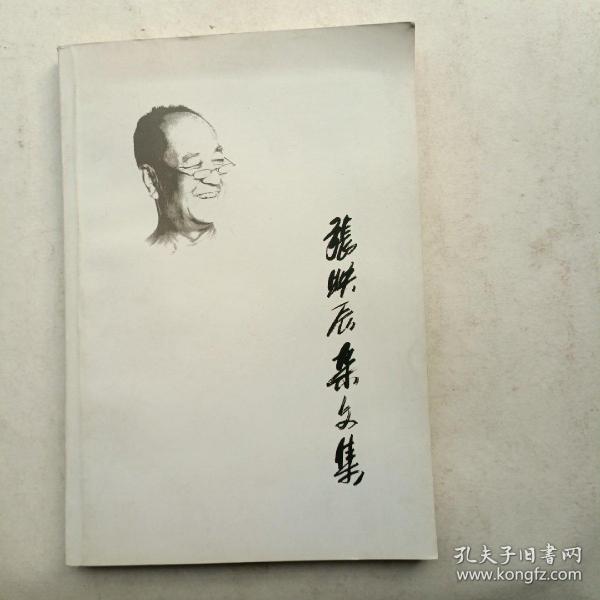 張映辰杂文集
孔夫子旧书网
www.kongfz.com